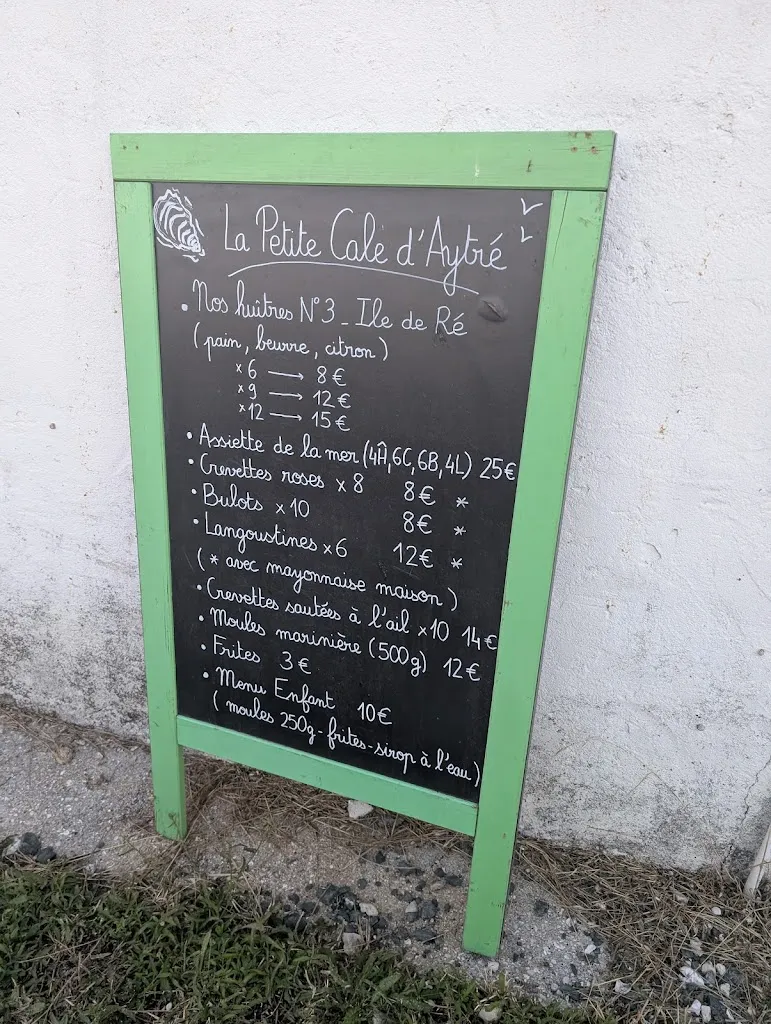 La Petite Cale d'Aytré
• Nos huîtres N°3 - Ile de Ré
(pain, beurre, citron)
x6 → 8€
x9 → 12€
x12 → 15€
• Assiette de la mer (4H,6C,6B,4L) 25€
• Crevettes roses x8 8€ *
• Bulots x10 8€ *
• Langoustines x6 12€ *
(* avec mayonnaise maison)
• Crevettes sautées à l'ail x10 14€
• Moules marinière (500g) 12€
• Frites 3€
• Menu Enfant 10€
(moules 250g-frites-sirop à l'eau)